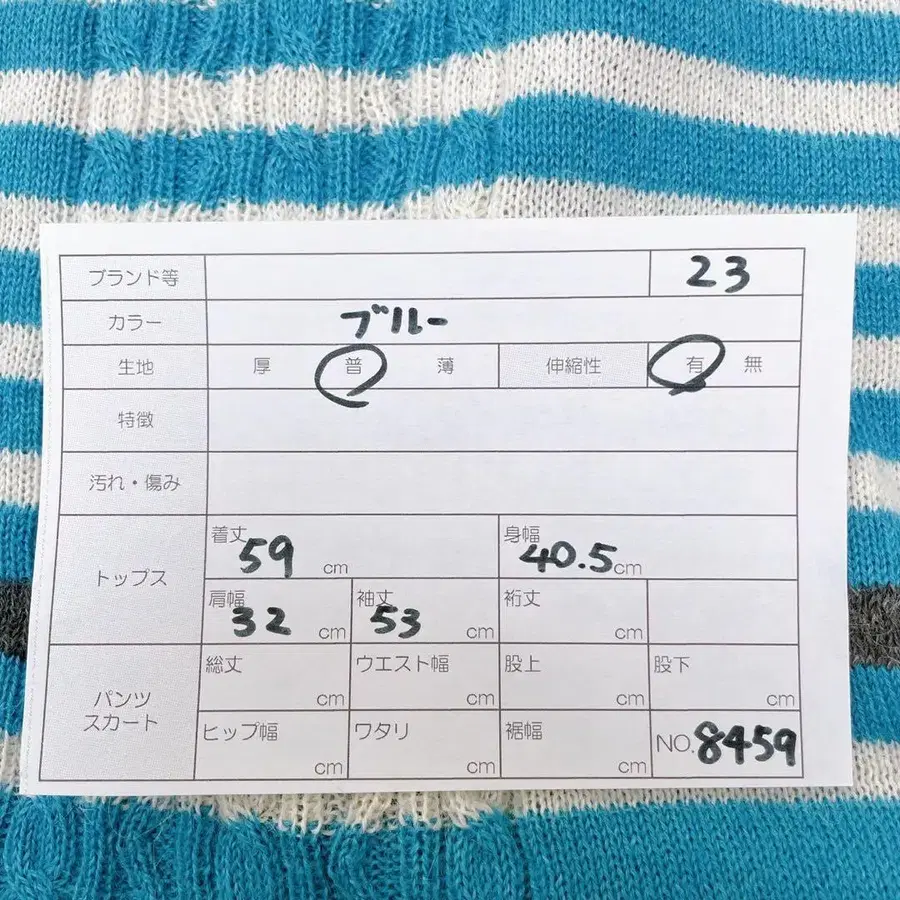 ブランド等 23
カラー ブルー
生地 厚 普 薄 伸縮性 有 無
特徴
汚れ・傷み
トップス
着丈 59 cm 身幅 40.5 cm
肩幅 32 cm 袖丈 53 cm 裄丈 cm
パンツ
スカート
総丈 cm ウエスト幅 cm 股上 cm 股下 cm
ヒップ幅 cm ワタリ cm 裾幅 cm NO. 8459